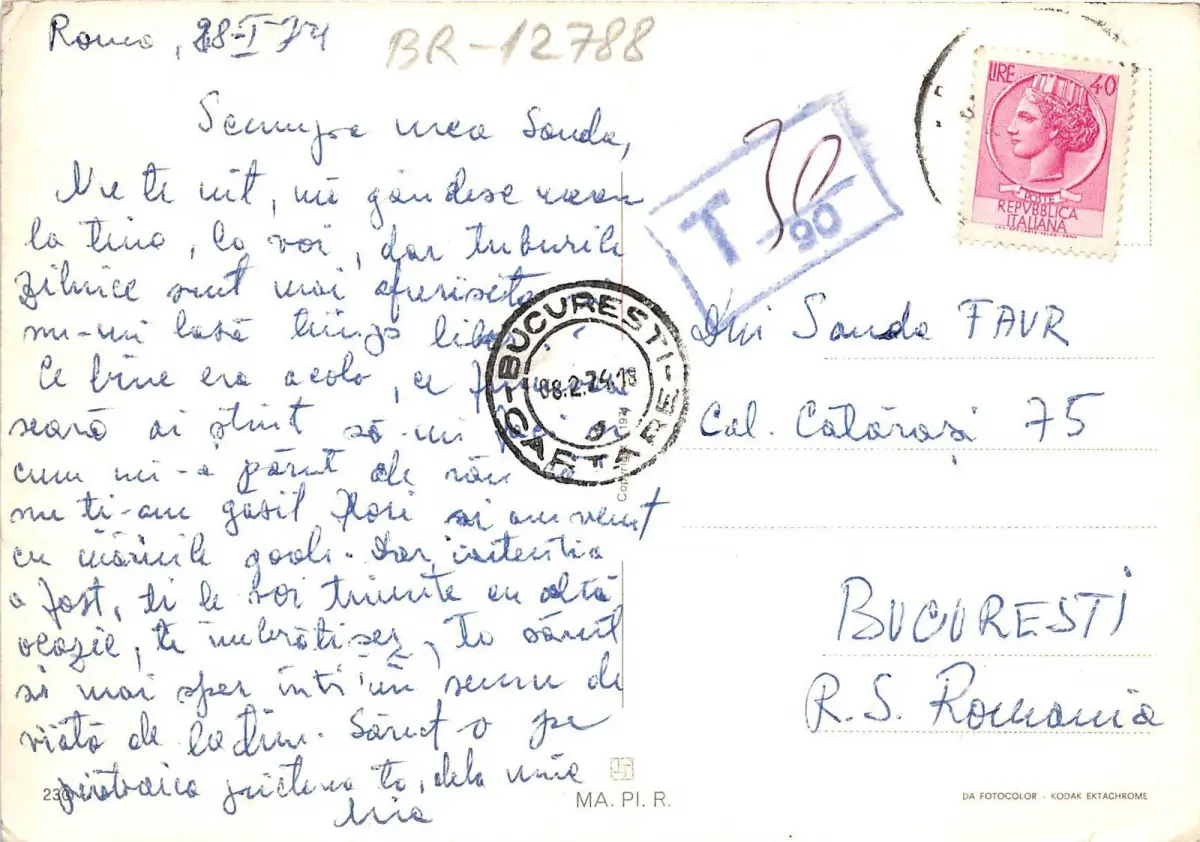 Roma, 28-I-74
BR-12788
Scumpa mea Sanda,
Nu te uit, mă gândesc mereu
la tine, la voi, dar
zilnice sunt mai
nu-mi lasă timp liber
Ce bine era acolo, ce
seară ai ştiut să-mi faci
cum mi-a părut de rău că
nu ti-am găsit flori si am venit
cu mâinile goale. Dar intentia
a fost, ti le voi trimite cu altă
ocazie, te îmbrătisez, te sărut
si mai sper într'un semn de
viată de la tine. Sărut-o pe
prietena ta, dela mine
LIRE 40
POSTE
REPVBBLICA
ITALIANA
T 30
90
BUCURESTI
08.2.74.18
CARTARE
Sanda FAUR
Cal. Călăraşi 75
BUCURESTI
R.S. Romania
MA. PI. R.
DA FOTOCOLOR - KODAK EKTACHROME